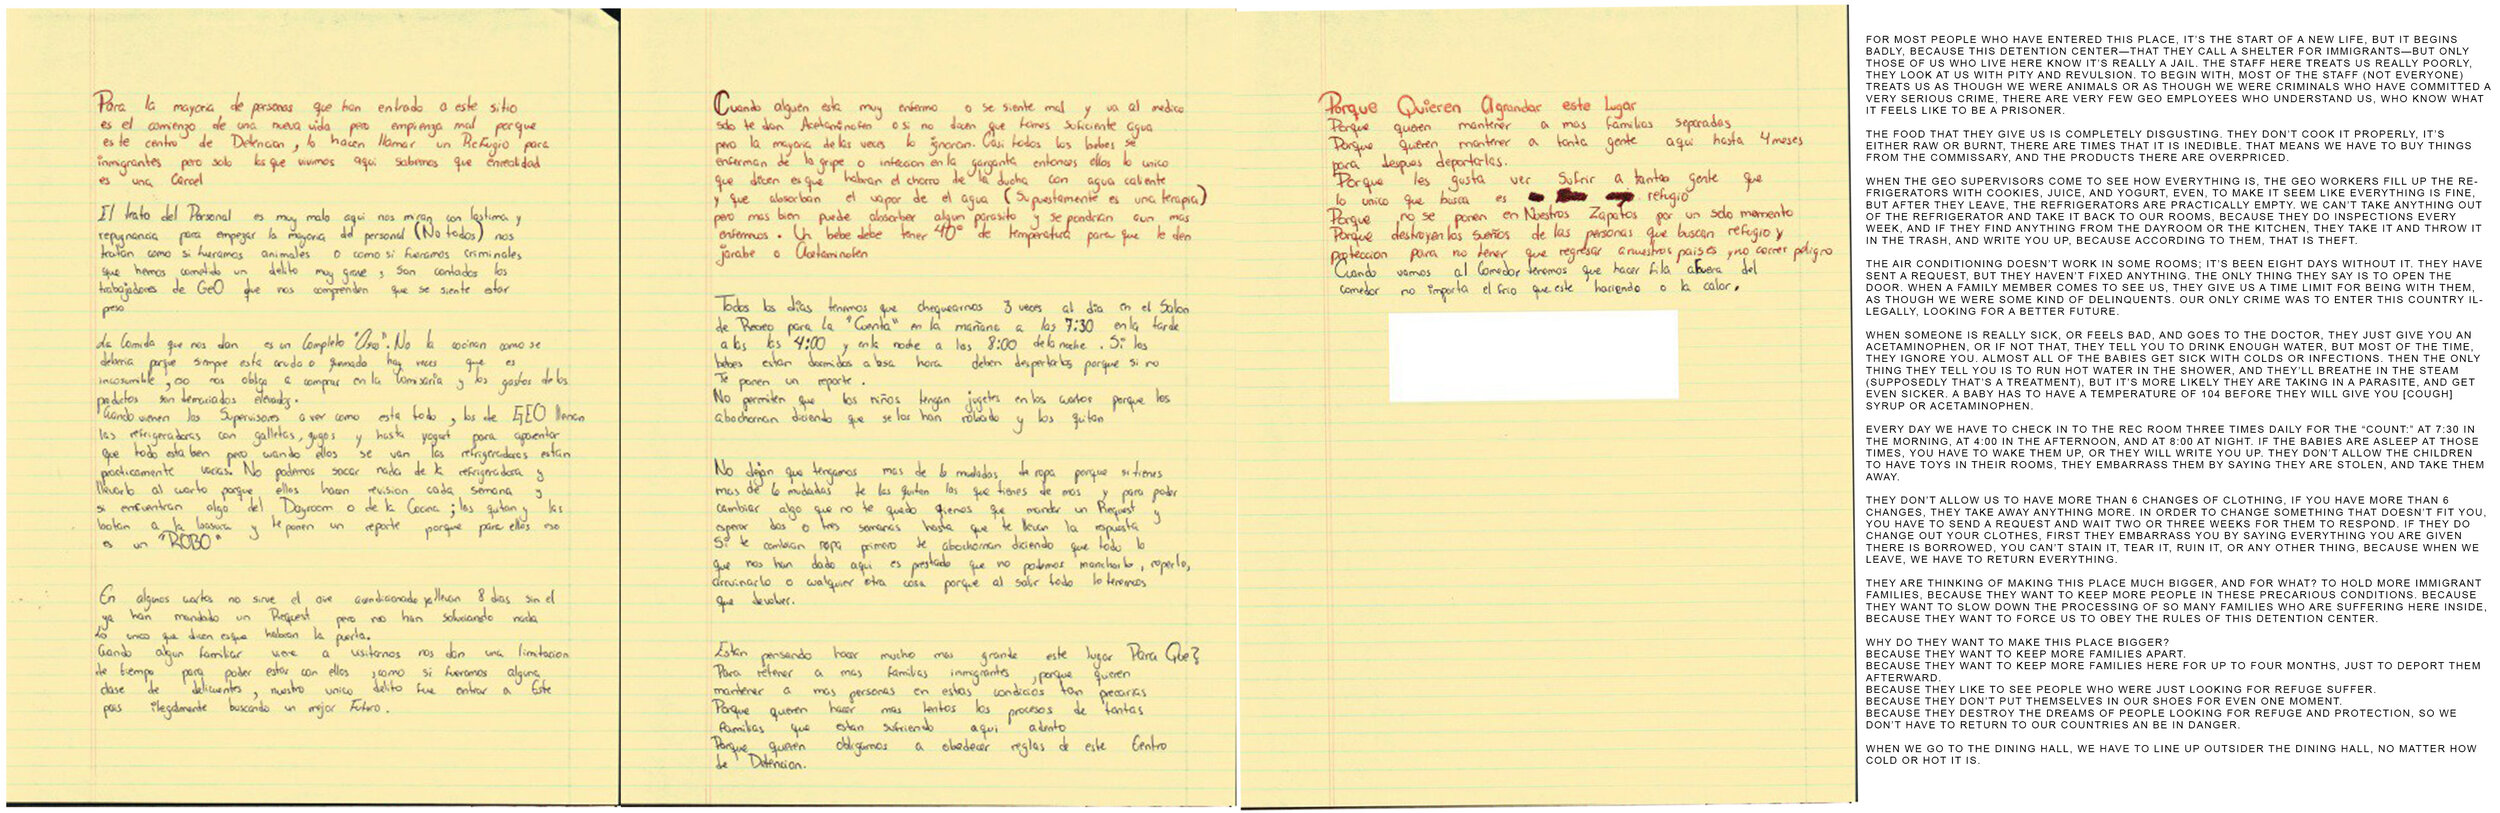 Para la mayoria de personas que han entrado a este sitio
es el comienzo de una nueva vida pero empienza mal porque
este centro de Detencion, lo hacen llamar un Refugio para
inmigrantes pero solo los que vivimos aqui sabemos que enrealidad
es una Carcel
El trato del Personal es muy malo aqui nos miran con lastima y
repugnancia para empezar la mayoria del personal (No todos) nos
tratan como si fueramos animales o como si fueramos criminales
que hemos cometido un delito muy grave, son contados los
trabajadores de GeO que nos comprenden que se siente estar
preso
La Comida que nos dan es un Completo "Asco". No la cocinan como se
deberia porque siempre esta crudo o quemado hay veces que es
incosumible, nos obliga a comprar en la Comisaria y los gastos de los
productos son demaciados elevados.
Cuando vienen los Supervisores a ver como esta todo, los de GEO llenan
las refrigeradoras con galletas, jugos y hasta yogurt para aparentar
que todo esta ben pero cuando ellos se van las refrigeradoras estan
practicamente vacias. No podemos sacar nada de la refrigeradora y
llevarlo al cuarto porque ellos hacen revision cada semana y
si encuentran algo del Dayroom o de la Cocina; las quitan y las
botan a la basura y te ponen un reporte porque para ellos eso
es un "ROBO"
En algunos cuartos no sirve el aire acondicionado ya llevan 8 dias sin el
ya han mandado un Request pero no han solucionado nada
Lo unico que dicen esque habran la puerta.
Cuando algun familiar viene a visitarnos nos dan una limitacion
de tiempo para poder estar con ellos, como si fueramos alguna
clase de delicuentes, nuestro unico delito fue entrar a Este
pais ilegalmente buscando un mejor Futuro.
Cuando alguien esta muy enfermo o se siente mal y va al medico
solo te dan Acetaminofen o si no dicen que tomes suficiente agua
pero la mayoria de las veces lo ignoran. Casi todos los bebes se
enferman de la gripe o infeccion en la garganta entonces ellos lo unico
que dicen es que habran el chorro de la ducha con agua caliente
y que absorban el vapor de el agua (Supuestamente es una terapia)
pero mas bien puede absorber algun parasito y se pondrian aun mas
enfermos. Un bebe debe tener 40° de temperatura para que le den
jarabe o Acetaminofen
Todos los dias tenemos que chequearnos 3 veces al dia en el Salon
de Recreo para la "Cuenta" en la mañana a las 7:30 en la tarde
a las las 4:00 y en la noche a las 8:00 de la noche. Si los
bebes estan dormidos a esa hora deben despertarlos porque si no
Te ponen un reporte.
No permiten que los niños tengan jugetes en los cuartos porque los
abochornan diciendo que se los han robado y los quitan
No dejan que tengamos mas de 6 mudadas de ropa porque si tienes
mas de 6 mudadas te las quitan las que tienes de mas y para poder
cambiar algo que no te quedo tienes que mandar un Request y
esperar dos o tres semanas hasta que te llevan la respuesta
Si te cambian ropa primero te abochornan diciendo que todo lo
que nos han dado aqui es prestado que no podemos mancharlo, roperlo,
arruinarlo o cualquier otra cosa porque al salir todo lo tenemos
que devolver.
Estan pensando hacer mucho mas grande este lugar Para Que?
Para retener a mas familias inmigrantes, porque quieren
mantener a mas personas en estas condicios tan precarias
Porque quieren hacer mas lentos los procesos de tantas
familias que estan sufriendo aqui adento
Porque quieren obligarnos a obedecer reglas de este Centro
de Detencion.
Porque Quieren Agrandar este Lugar
Porque quieren mantener a mas familias separadas
Porque quieren mantener a tanta gente aqui hasta 4 meses
para despues deportarlas.
Porque les gusta ver Sufrir a tantas gente que
lo unico que busca es refugio
Porque no se ponen en Nuestros Zapatos por un solo momento
Porque destroyen los sueños de las personas que buscan refugio y
proteccion para no tener que regresar a nuestros paises y no correr peligro
Cuando vamos al Comedor tenemos que hacer fila afuera del
comedor no importa el frio que este haciendo o la calor.
FOR MOST PEOPLE WHO HAVE ENTERED THIS PLACE, IT'S THE START OF A NEW LIFE, BUT IT BEGINS
BADLY, BECAUSE THIS DETENTION CENTER—THAT THEY CALL A SHELTER FOR IMMIGRANTS—BUT ONLY
THOSE OF US WHO LIVE HERE KNOW IT'S REALLY A JAIL. THE STAFF HERE TREATS US REALLY POORLY,
THEY LOOK AT US WITH PITY AND REVULSION. TO BEGIN WITH, MOST OF THE STAFF (NOT EVERYONE)
TREATS US AS THOUGH WE WERE ANIMALS OR AS THOUGH WE WERE CRIMINALS WHO HAVE COMMITTED A
VERY SERIOUS CRIME, THERE ARE VERY FEW GEO EMPLOYEES WHO UNDERSTAND US, WHO KNOW WHAT
IT FEELS LIKE TO BE A PRISONER.
THE FOOD THAT THEY GIVE US IS COMPLETELY DISGUSTING. THEY DON'T COOK IT PROPERLY, IT'S
EITHER RAW OR BURNT, THERE ARE TIMES THAT IT IS INEDIBLE. THAT MEANS WE HAVE TO BUY THINGS
FROM THE COMMISSARY, AND THE PRODUCTS THERE ARE OVERPRICED.
WHEN THE GEO SUPERVISORS COME TO SEE HOW EVERYTHING IS, THE GEO WORKERS FILL UP THE RE-
FRIGERATORS WITH COOKIES, JUICE, AND YOGURT, EVEN, TO MAKE IT SEEM LIKE EVERYTHING IS FINE,
BUT AFTER THEY LEAVE, THE REFRIGERATORS ARE PRACTICALLY EMPTY. WE CAN'T TAKE ANYTHING OUT
OF THE REFRIGERATOR AND TAKE IT BACK TO OUR ROOMS, BECAUSE THEY DO INSPECTIONS EVERY
WEEK, AND IF THEY FIND ANYTHING FROM THE DAYROOM OR THE KITCHEN, THEY TAKE IT AND THROW IT
IN THE TRASH, AND WRITE YOU UP, BECAUSE ACCORDING TO THEM, THAT IS THEFT.
THE AIR CONDITIONING DOESN'T WORK IN SOME ROOMS; IT'S BEEN EIGHT DAYS WITHOUT IT. THEY HAVE
SENT A REQUEST, BUT THEY HAVEN'T FIXED ANYTHING. THE ONLY THING THEY SAY IS TO OPEN THE
DOOR. WHEN A FAMILY MEMBER COMES TO SEE US, THEY GIVE US A TIME LIMIT FOR BEING WITH THEM,
AS THOUGH WE WERE SOME KIND OF DELINQUENTS. OUR ONLY CRIME WAS TO ENTER THIS COUNTRY IL-
LEGALLY, LOOKING FOR A BETTER FUTURE.
WHEN SOMEONE IS REALLY SICK, OR FEELS BAD, AND GOES TO THE DOCTOR, THEY JUST GIVE YOU AN
ACETAMINOPHEN, OR IF NOT THAT, THEY TELL YOU TO DRINK ENOUGH WATER, BUT MOST OF THE TIME,
THEY IGNORE YOU. ALMOST ALL OF THE BABIES GET SICK WITH COLDS OR INFECTIONS. THEN THE ONLY
THING THEY TELL YOU IS TO RUN HOT WATER IN THE SHOWER, AND THEY'LL BREATHE IN THE STEAM
(SUPPOSEDLY THAT'S A TREATMENT), BUT IT'S MORE LIKELY THEY ARE TAKING IN A PARASITE, AND GET
EVEN SICKER. A BABY HAS TO HAVE A TEMPERATURE OF 104 BEFORE THEY WILL GIVE YOU [COUGH]
SYRUP OR ACETAMINOPHEN.
EVERY DAY WE HAVE TO CHECK IN TO THE REC ROOM THREE TIMES DAILY FOR THE “COUNT:” AT 7:30 IN
THE MORNING, AT 4:00 IN THE AFTERNOON, AND AT 8:00 AT NIGHT. IF THE BABIES ARE ASLEEP AT THOSE
TIMES, YOU HAVE TO WAKE THEM UP, OR THEY WILL WRITE YOU UP. THEY DON'T ALLOW THE CHILDREN
TO HAVE TOYS IN THEIR ROOMS, THEY EMBARRASS THEM BY SAYING THEY ARE STOLEN, AND TAKE THEM
AWAY.
THEY DON'T ALLOW US TO HAVE MORE THAN 6 CHANGES OF CLOTHING, IF YOU HAVE MORE THAN 6
CHANGES, THEY TAKE AWAY ANYTHING MORE. IN ORDER TO CHANGE SOMETHING THAT DOESN'T FIT YOU,
YOU HAVE TO SEND A REQUEST AND WAIT TWO OR THREE WEEKS FOR THEM TO RESPOND. IF THEY DO
CHANGE OUT YOUR CLOTHES, FIRST THEY EMBARRASS YOU BY SAYING EVERYTHING YOU ARE GIVEN
THERE IS BORROWED, YOU CAN'T STAIN IT, TEAR IT, RUIN IT, OR ANY OTHER THING, BECAUSE WHEN WE
LEAVE, WE HAVE TO RETURN EVERYTHING.
THEY ARE THINKING OF MAKING THIS PLACE MUCH BIGGER, AND FOR WHAT? TO HOLD MORE IMMIGRANT
FAMILIES, BECAUSE THEY WANT TO KEEP MORE PEOPLE IN THESE PRECARIOUS CONDITIONS. BECAUSE
THEY WANT TO SLOW DOWN THE PROCESSING OF SO MANY FAMILIES WHO ARE SUFFERING HERE INSIDE,
BECAUSE THEY WANT TO FORCE US TO OBEY THE RULES OF THIS DETENTION CENTER.
WHY DO THEY WANT TO MAKE THIS PLACE BIGGER?
BECAUSE THEY WANT TO KEEP MORE FAMILIES APART.
BECAUSE THEY WANT TO KEEP MORE FAMILIES HERE FOR UP TO FOUR MONTHS, JUST TO DEPORT THEM
AFTERWARD.
BECAUSE THEY LIKE TO SEE PEOPLE WHO WERE JUST LOOKING FOR REFUGE SUFFER.
BECAUSE THEY DON'T PUT THEMSELVES IN OUR SHOES FOR EVEN ONE MOMENT.
BECAUSE THEY DESTROY THE DREAMS OF PEOPLE LOOKING FOR REFUGE AND PROTECTION, SO WE
DON'T HAVE TO RETURN TO OUR COUNTRIES AN BE IN DANGER.
WHEN WE GO TO THE DINING HALL, WE HAVE TO LINE UP OUTSIDER THE DINING HALL, NO MATTER HOW
COLD OR HOT IT IS.